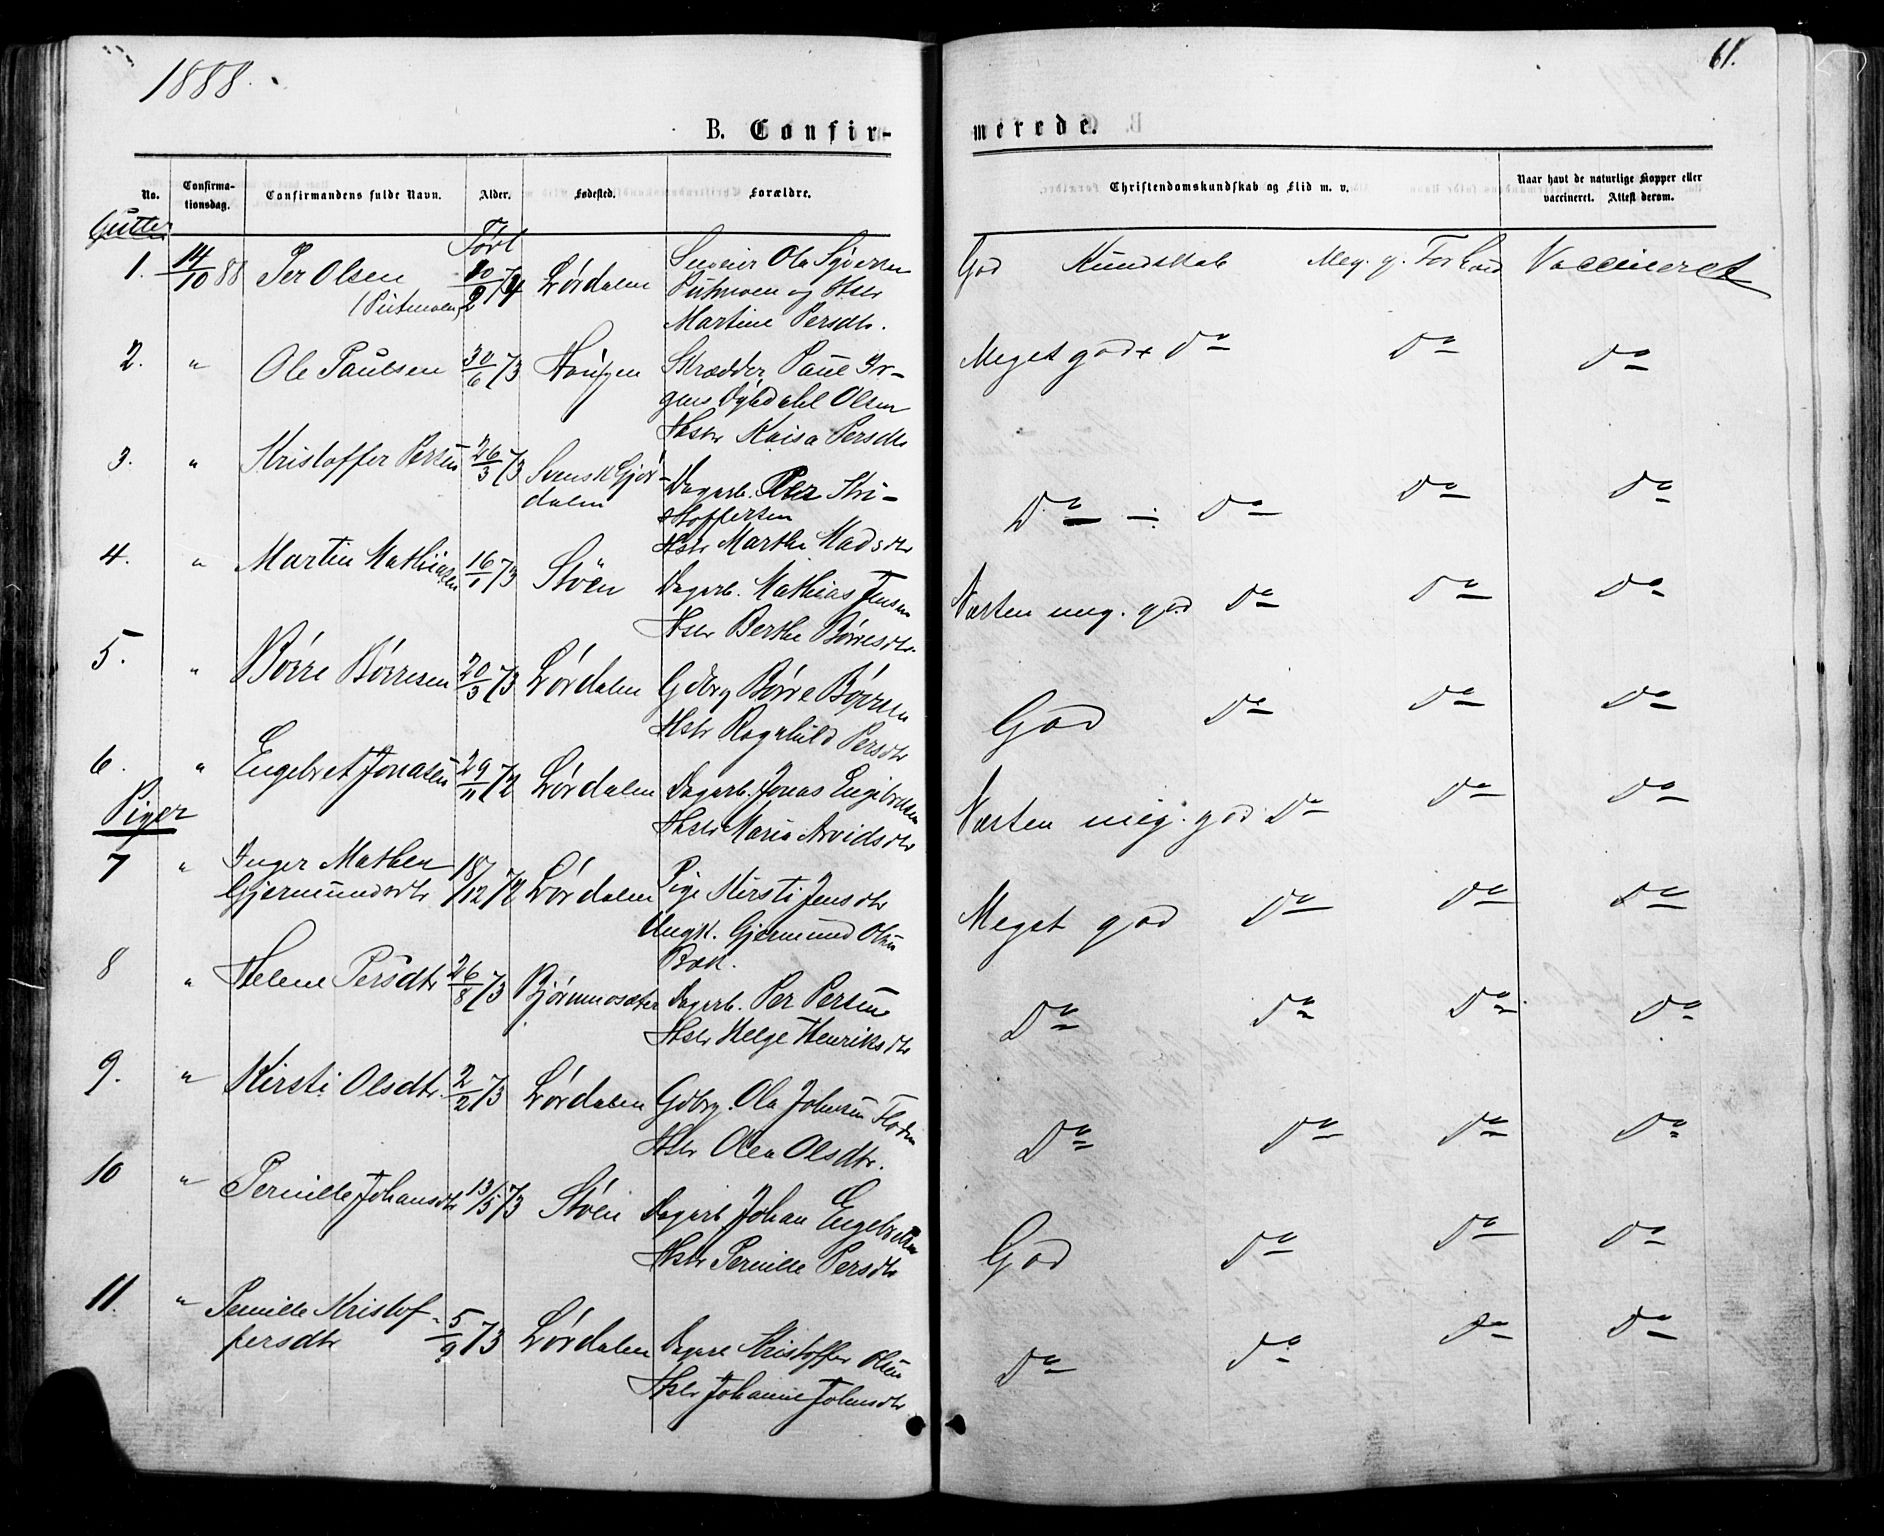 1888.
61.
B. Confir-
merede.
No.
Confirma-
tionsdag.
Confirmandens fulde Navn.
Alder.
Fødested.
Forældre.
Christendomskundskab og Flid m. v.
Naar havt de naturlige Kopper eller
vaccineret. Attest derom.
Gutter
Født
1. 14/10 88 Per Olsen 20/2 74 Lørdalen
Martine Persdtr.
God Kundskab Meg. g. Forhold Vaccineret
2. " Ole Paulsen 30/6 73 Haugen Skrædder Paul Jr-
gens Olsen
Hstr Kaisa Persdtr
Meget god Do Do Do
3. " Kristoffer Persen 26/3 73 Svensk Gjør-
dalen
Dagarb. Per Kri-
stoffersen
Hstr Marthe Madsdtr
Do - Do Do Do
4. " Martin Mathiasen 16/1 73 Støen Dagarb. Mathias Jensen
Hstr Berthe Børresdtr
Næsten meg. god Do Do Do
5. " Børre Børresen 20/3 73 Lørdalen Gdbrg Børre Børresen
Hstr Ragnhild Persdtr
God Do Do Do
6. " Engebret Jonasen 29/11 72 Lørdalen Dagarb. Jonas Engebretsen
Hstr Maria Arvidsdtr
Næsten meg. god Do Do Do
Piger
7 " Inger Mathea
Gjermundsdtr 18/12 72 Lørdalen Pige Kirsti Jensdtr
Ungk. Gjermund Olsen
Bak.
Meget god Do Do Do
8 " Helene Persdtr 26/8 73 Bjørnmosæter Dagarb. Per Persen
Hstr Helge Henriksdtr
Do Do Do Do
9. " Kirsti Olsdtr. 2/2 73 Lørdalen Gdbrg. Ola Johnsen Floden
Hstr Olea Olsdtr.
Do Do Do Do
10 " Pernille Johansdtr 13/5 73 Støen Dagarb Johan Engebretsen
Hstr Pernille Persdtr
God Do Do Do
11. " Pernille Kristof-
fersdtr 5/9 73 Lørdalen Dagarb Kristoffer Olsen
Hstr Johanne Johnsdtr
Do Do Do Do